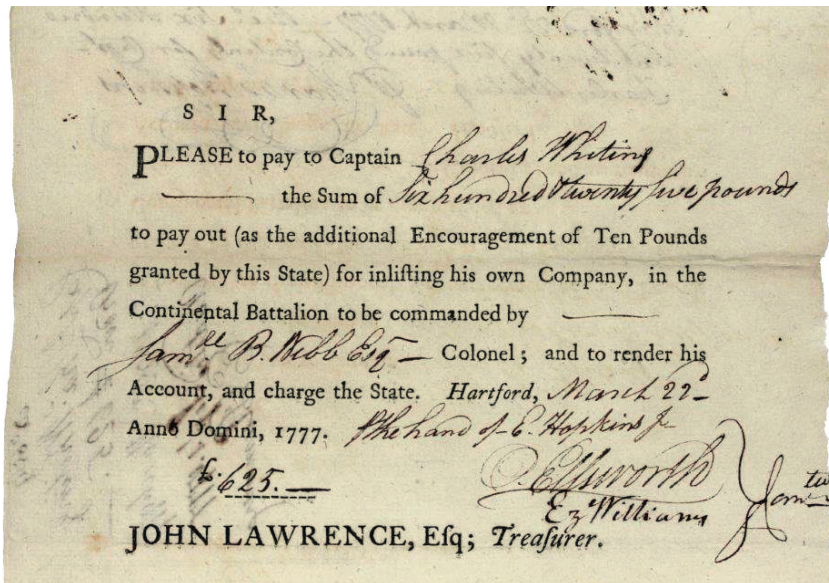 S I R,
PLEASE to pay to Captain Charles Whiting
—— the Sum of Six hundred & twenty five pounds
to pay out (as the additional Encouragement of Ten Pounds
granted by this State) for inliſting his own Company, in the
Continental Battalion to be commanded by ——
Samll B. Webb Esqr — Colonel; and to render his
Account, and charge the State. Hartford, March 22d
Anno Domini, 1777. P the hand of E. Hopkins Jr
£625.—
O. Ellsworth
Ez Williams
Comtte
JOHN LAWRENCE, Eſq; Treaſurer.